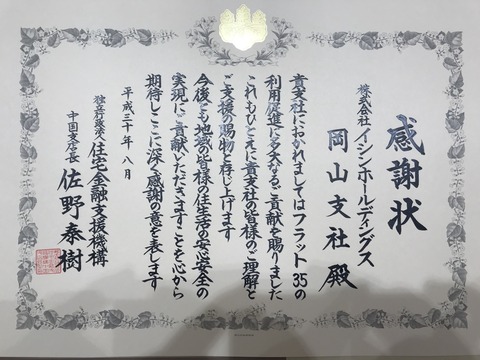 感謝状
株式会社イシンホールディングス
岡山支社 殿
貴支社におかれましてはフラット35の
利用促進に多大なるご貢献を賜りました
これもひとえに貴支社の皆様のご理解と
ご支援の賜物と存じ上げます
今後とも地域の皆様の住生活の安心安全の
実現にご貢献いただきますことを心から
期待しここに深く感謝の意を表します
平成三十年 八月
独立行政法人住宅金融支援機構
中国支店長 佐野泰樹